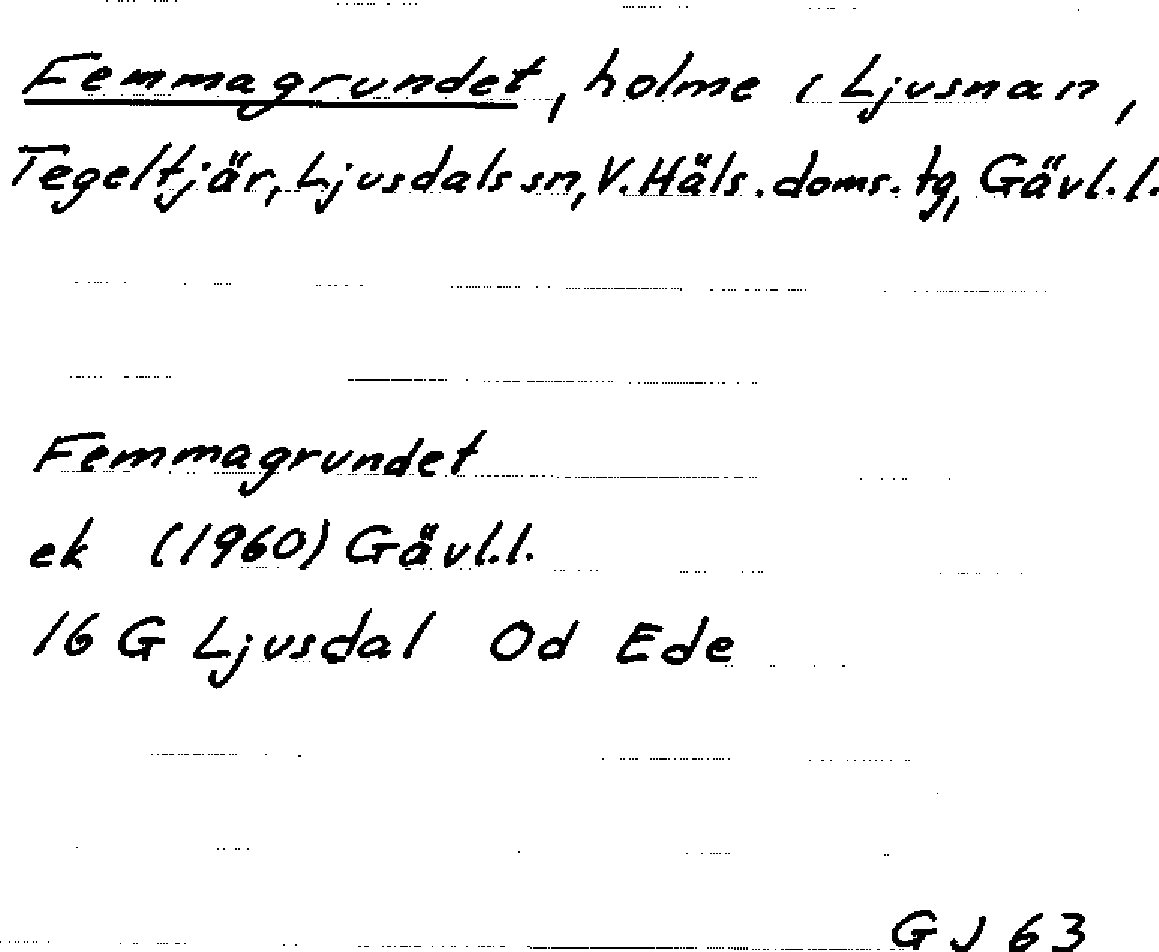 Femmagrundet, holme i Ljusnan,
Tegeltjär, Ljusdals sn, V. Häls. doms. tg, Gävl. l.
Femmagrundet
ek (1960) Gävl. l.
16 G Ljusdal Od Ede
GJ 63